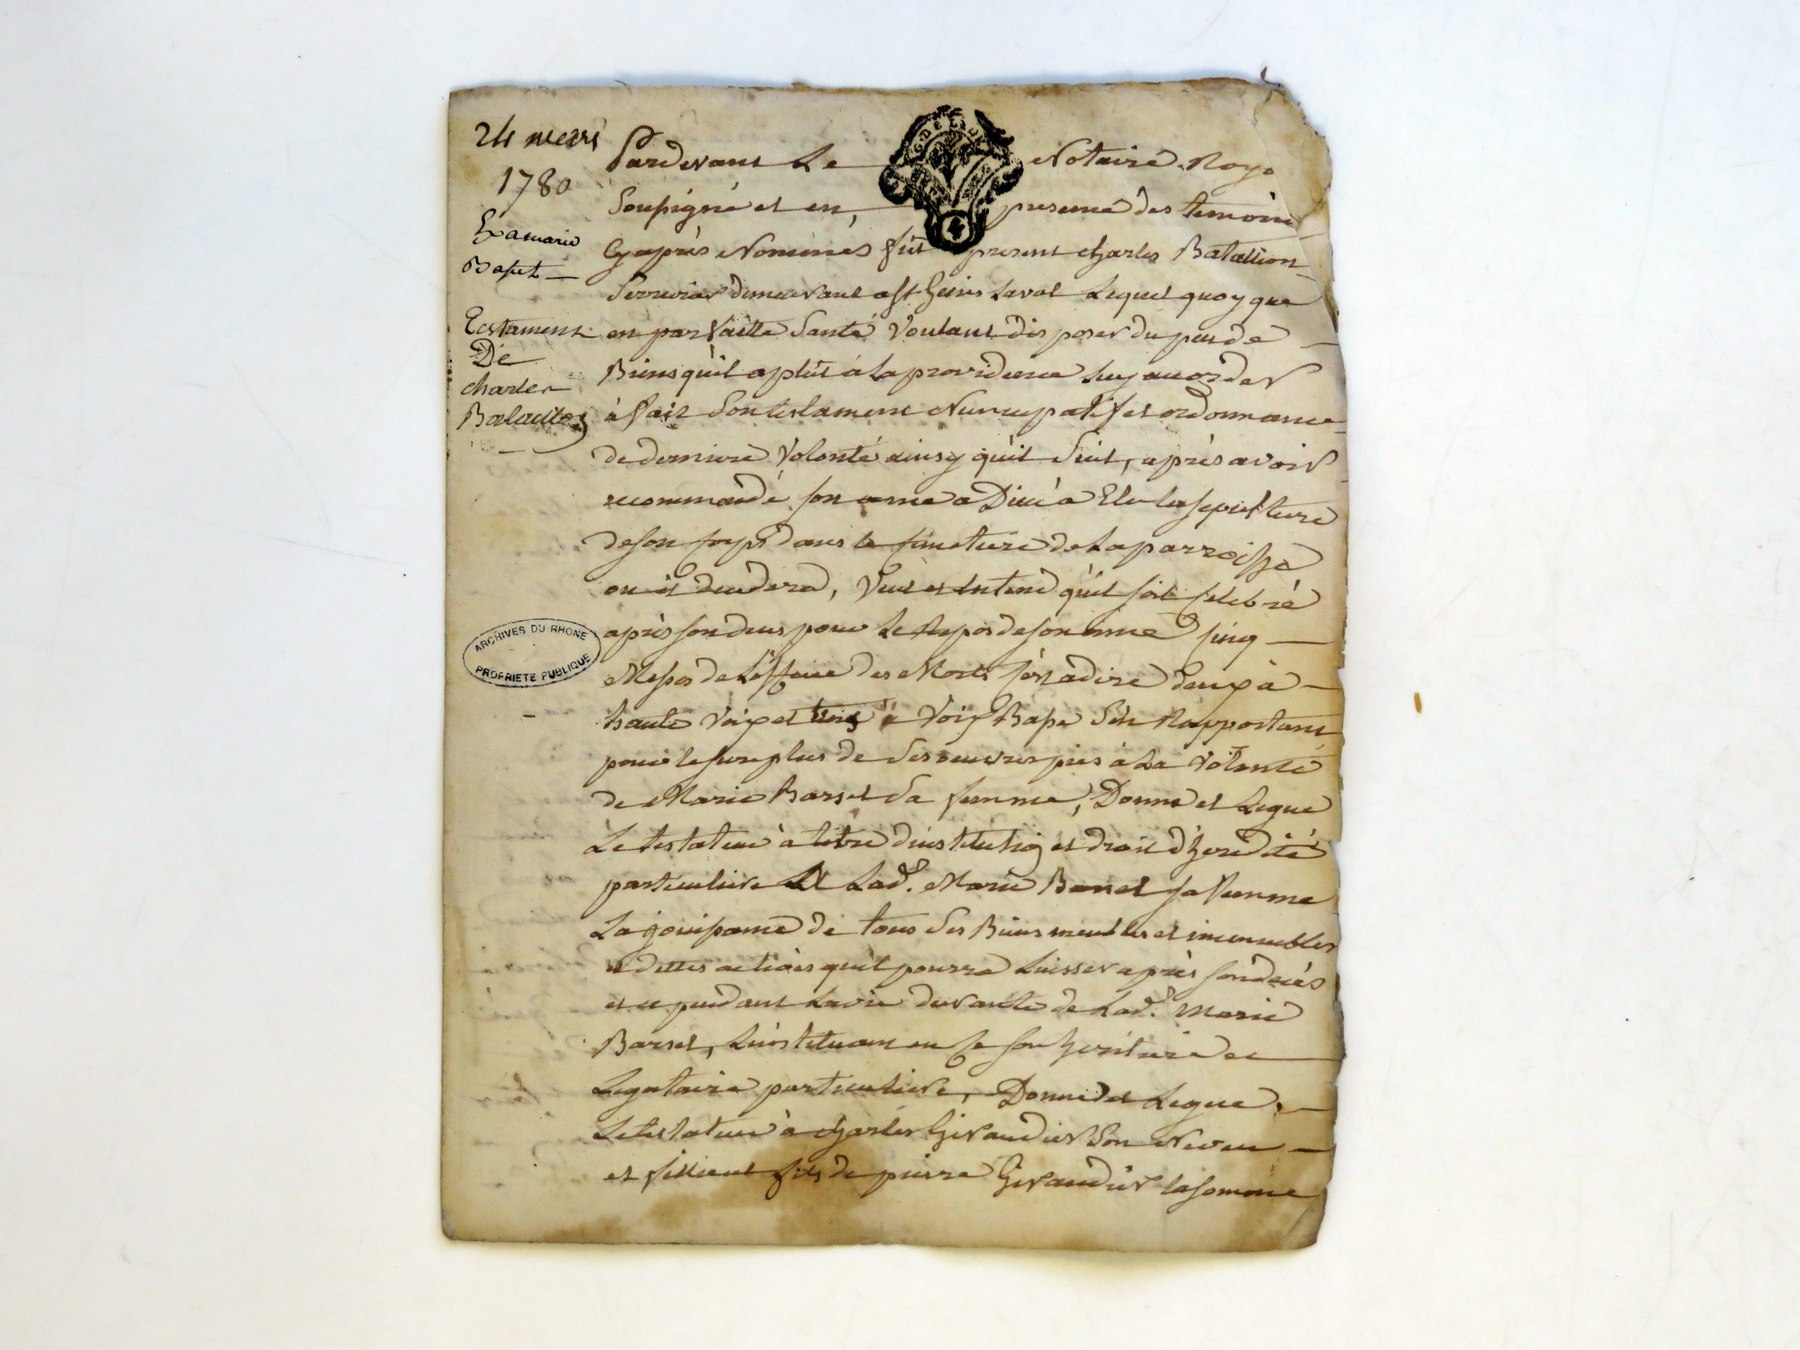 24 mars
1780
Exa marie
Baset
Testament
De
charles
Balaillon
ARCHIVES DU RHONE
PROPRIETE PUBLIQUE
G. DE LYON
4
Pardevant Le Notaire Roya
Soussigné et en presence des temoins
Cy après Nommés fut present charles Bataillon
Serrurier demeurant a st Genis Laval Lequel quoy que
en parfaitte Santé voulant disposer du peu de
Biens qu'il a plût à la providence luy accorder
à fait Son testament Nuncupatif et ordonnance
de derniere volonté ainsy qu'il Suit, après avoir
recommandé son ame a Dieu a Elu la sepulture
de son corps dans le simetiere de La parroisse
ou il decedera, veut et entend qu'il soit selebré
après son deces pour Le Repos de son ame sinq
Messes de L'office des Morts sest a dire deux à
haute voix et trois a voix Basse S'en Rapportant
pour le surplus de ses oeuvres pies à La volonté
de Marie Barset Sa femme, Donne et Legue
Le testateur à titre d'institution et droit d'heredité
particuliere A Lad. Marie Barset sa femme
La jouissance de tous Ses Biens meubles et immeubles
et dettes actives qu'il pourra Laisser après son deces
et ce pendant La vie durante de Lad. Marie
Barset, L'instituant en se son heritiere et
Legataire particuliere, Donne et Legue
Le testateur à charles Giraudier Son Neveu
et fillieul fils de pierre Giraudier la somme